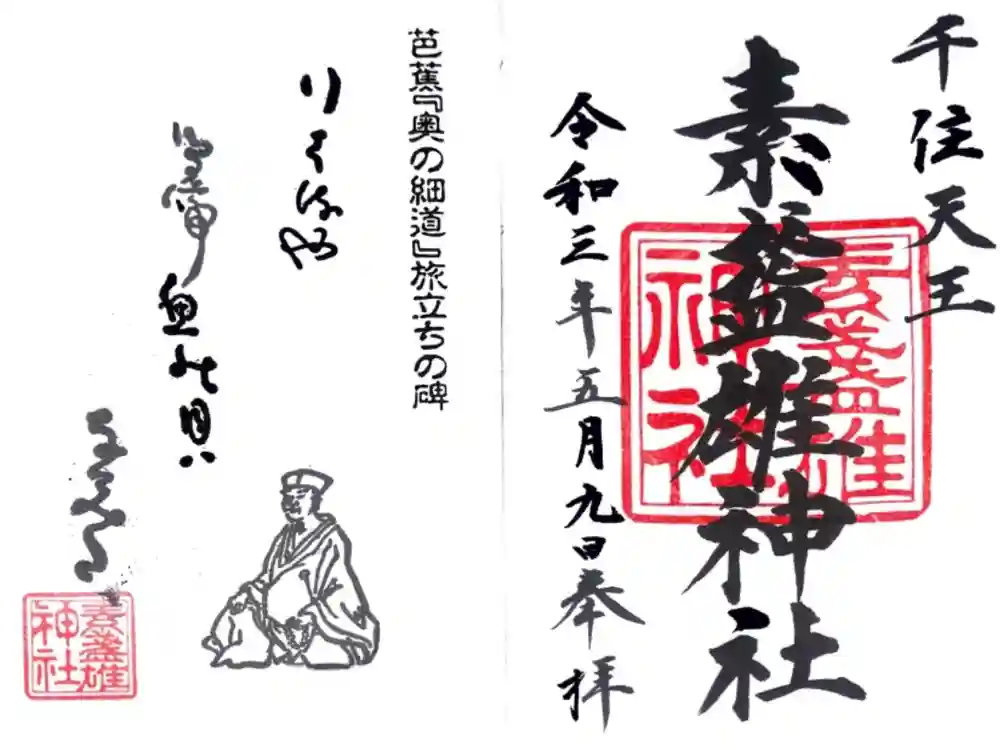 千住天王
素盞雄神社
令和三年五月九日奉拝
芭蕉『奥の細道』旅立ちの碑
行はるや
鳥啼魚の目ハ
素盞雄神社
素盞雄神社